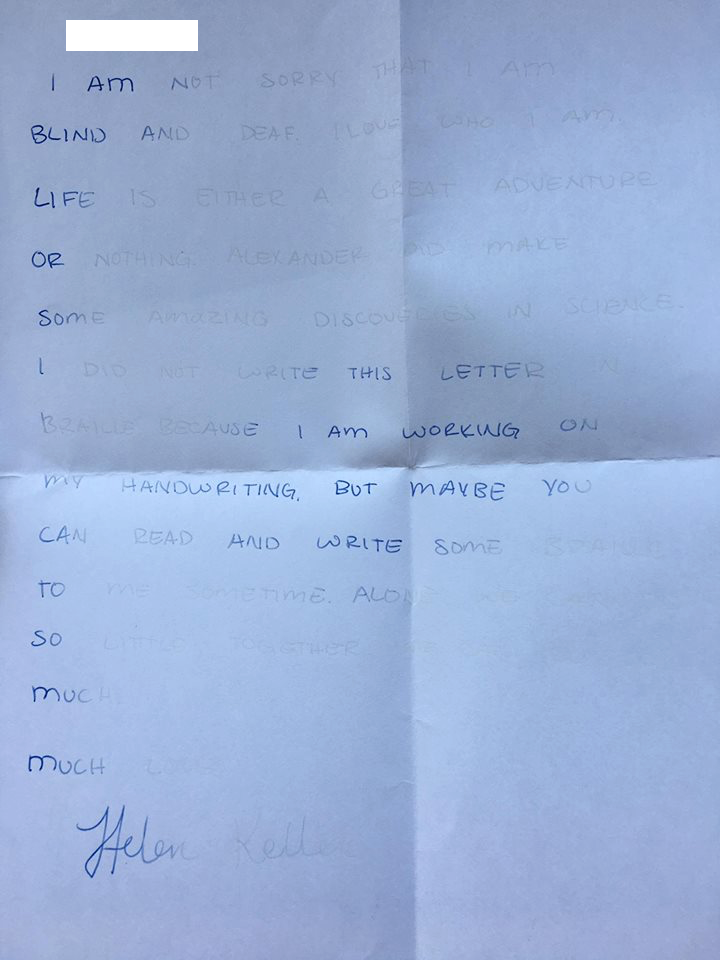 I AM NOT SORRY THAT I AM
BLIND AND DEAF. I LOVE WHO I AM.
LIFE IS EITHER A GREAT ADVENTURE
OR NOTHING. ALEXANDER DID MAKE
SOME AMAZING DISCOVERIES IN SCIENCE.
I DID NOT WRITE THIS LETTER IN
BRAILLE BECAUSE I AM WORKING ON
MY HANDWRITING. BUT MAYBE YOU
CAN READ AND WRITE SOME BRAILLE
TO ME SOMETIME. ALONE WE CAN
SO LITTLE TOGETHER
MUCH
MUCH LOVE
Helen Kelle